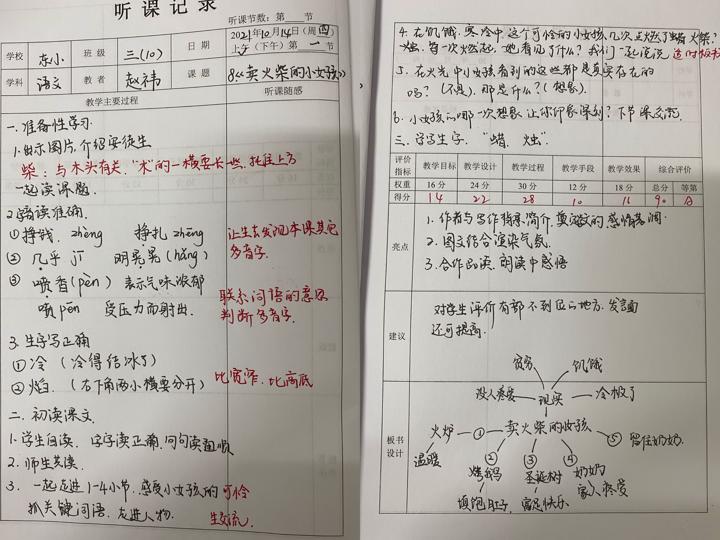 听课记录
听课节数：第 节
学校 东小 班级 三(10) 日期 2021年10月14日(周四)
上午(下午)第一节
学科 语文 教者 赵祎 课题 8《卖火柴的小女孩》
教学主要过程 听课随感
一、准备性学习.
1.出示图片,介绍安徒生
柴：与木头有关."木"的一横要长一些,托住上方
一起读课题.
2.读准确.
①挣钱. zhèng 挣扎 zhēng
让生去发现本课其它多音字.
② 几乎 jī 明晃晃(hǎng)
③ 喷香(pèn) 表示气味浓郁
喷 pēn 受压力而射出.
联系词语的意思
判断多音字.
3.生字写正确
①冷 (冷得结冰了)
②焰. (右下角两小横要分开) 比宽窄.比高低
二、初读课文.
1.学生自读. 字字读正确,句句读通顺
2.师生共读.
3. 一起走进1-4小节.感受小女孩的可怜
抓关键词语.走进人物. 生交流.
4.在饥饿.寒冷中,这个可怜的小女孩几次点燃了火柴?
每一次燃起,她看见了什么? 我们一起说说 适时板书
5. 在火光中小女孩看到的这些都是真实存在的
吗? (不是). 那是什么? (想象).
6. 小女孩的哪一次想象让你印象深刻? 下节课交流.
三、学写生字. "蜡、烛".
评价指标 教学目标 教学设计 教学过程 教学手段 教学效果 综合评价
权重 16分 24分 30分 12分 18分 总分 等第
得分 14 22 28 10 16 90 A
亮点
1.作者与写作背景简介,奠定文的感情基调.
2.图文结合渲染气氛.
3.合作品读.朗读中感悟
建议
对学生评价有部不到位的地方.发言面
还可提高.
板书设计
贫穷 饥饿
没人疼爱 现实 冷极了
火炉 ① 卖火柴的小女孩 ⑤ 留住奶奶.
温暖 ② ③ ④
烤鹅 圣诞树 奶奶
填饱肚子 富足快乐 家人疼爱